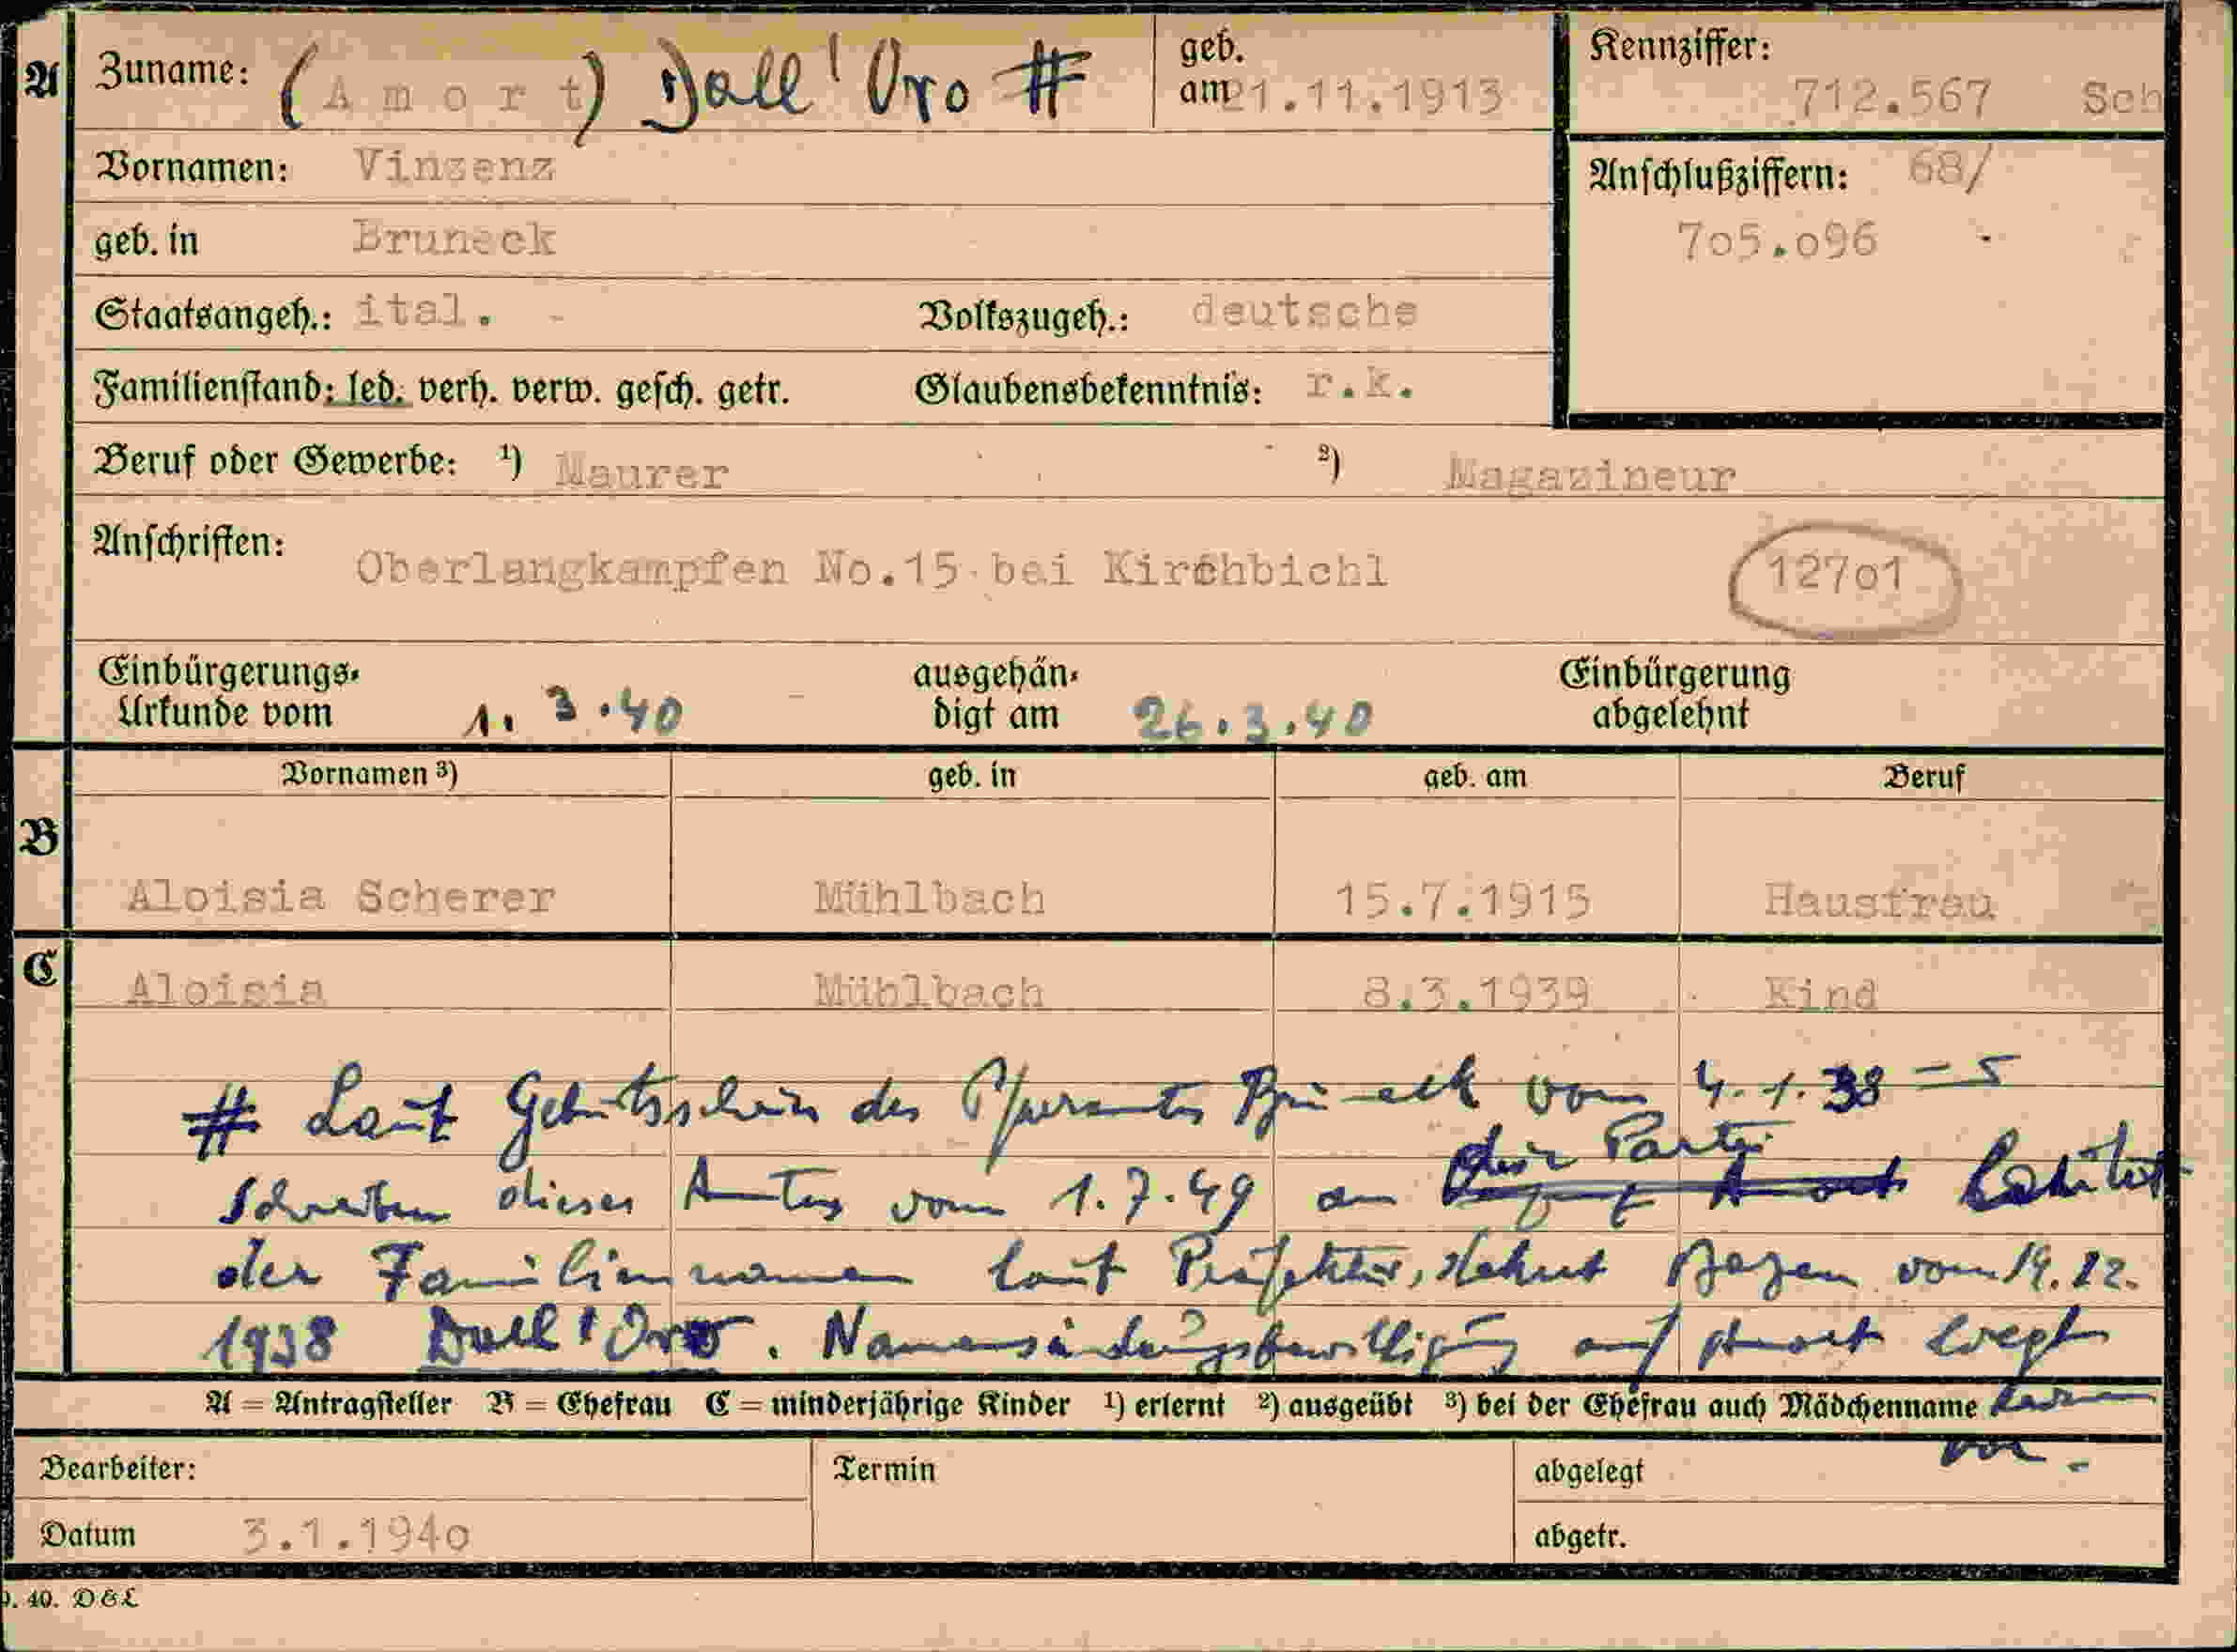 A Zuname: (Amort) Dall'Oro # geb. am 21.11.1913 Kennziffer: 712.567 Sch
Vornamen: Vinzenz Anschlußziffern: 68/
geb. in Bruneck 705.096
Staatsangeh.: ital. Volkszugeh.: deutsche
Familienstand: led. verh. verw. gesch. getr. Glaubensbekenntnis: r.k.
Beruf oder Gewerbe: 1) Maurer 2) Magazineur
Anschriften: Oberlangkampfen No.15 bei Kirchbichl 12701
Einbürgerungs- ausgehän- Einbürgerung
Urkunde vom 1. 3.40 digt am 26.3.40 abgelehnt
Vornamen 3) geb. in geb. am Beruf
B
Aloisia Scherer Mühlbach 15.7.1915 Hausfrau
C Aloisia Mühlbach 8.3.1939 Kind
# Laut Geburtsschein des Pfarramtes Bruneck vom 4.1.38 = 5
die Partei
Schreiben dieses Amtes vom 1.7.49 an lautet
der Familiennamen laut Präfektur, Dekret Bozen vom 19.12.
1938 Dall'Oro. Namensänderungsbewilligung auf Amort liegt
A = Antragsteller B = Ehefrau C = minderjährige Kinder 1) erlernt 2) ausgeübt 3) bei der Ehefrau auch Mädchenname
vor.
Bearbeiter: Termin abgelegt
Datum 3.1.1940 abgetr.
40. D&L